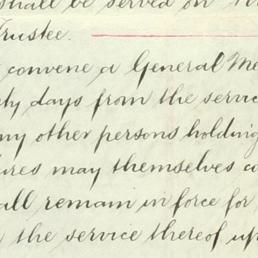 shall be served on
Trustee.
convene a General Me
ty days from the servic
ny other persons holding
ures may themselves co
all remain in force for
the service thereof up